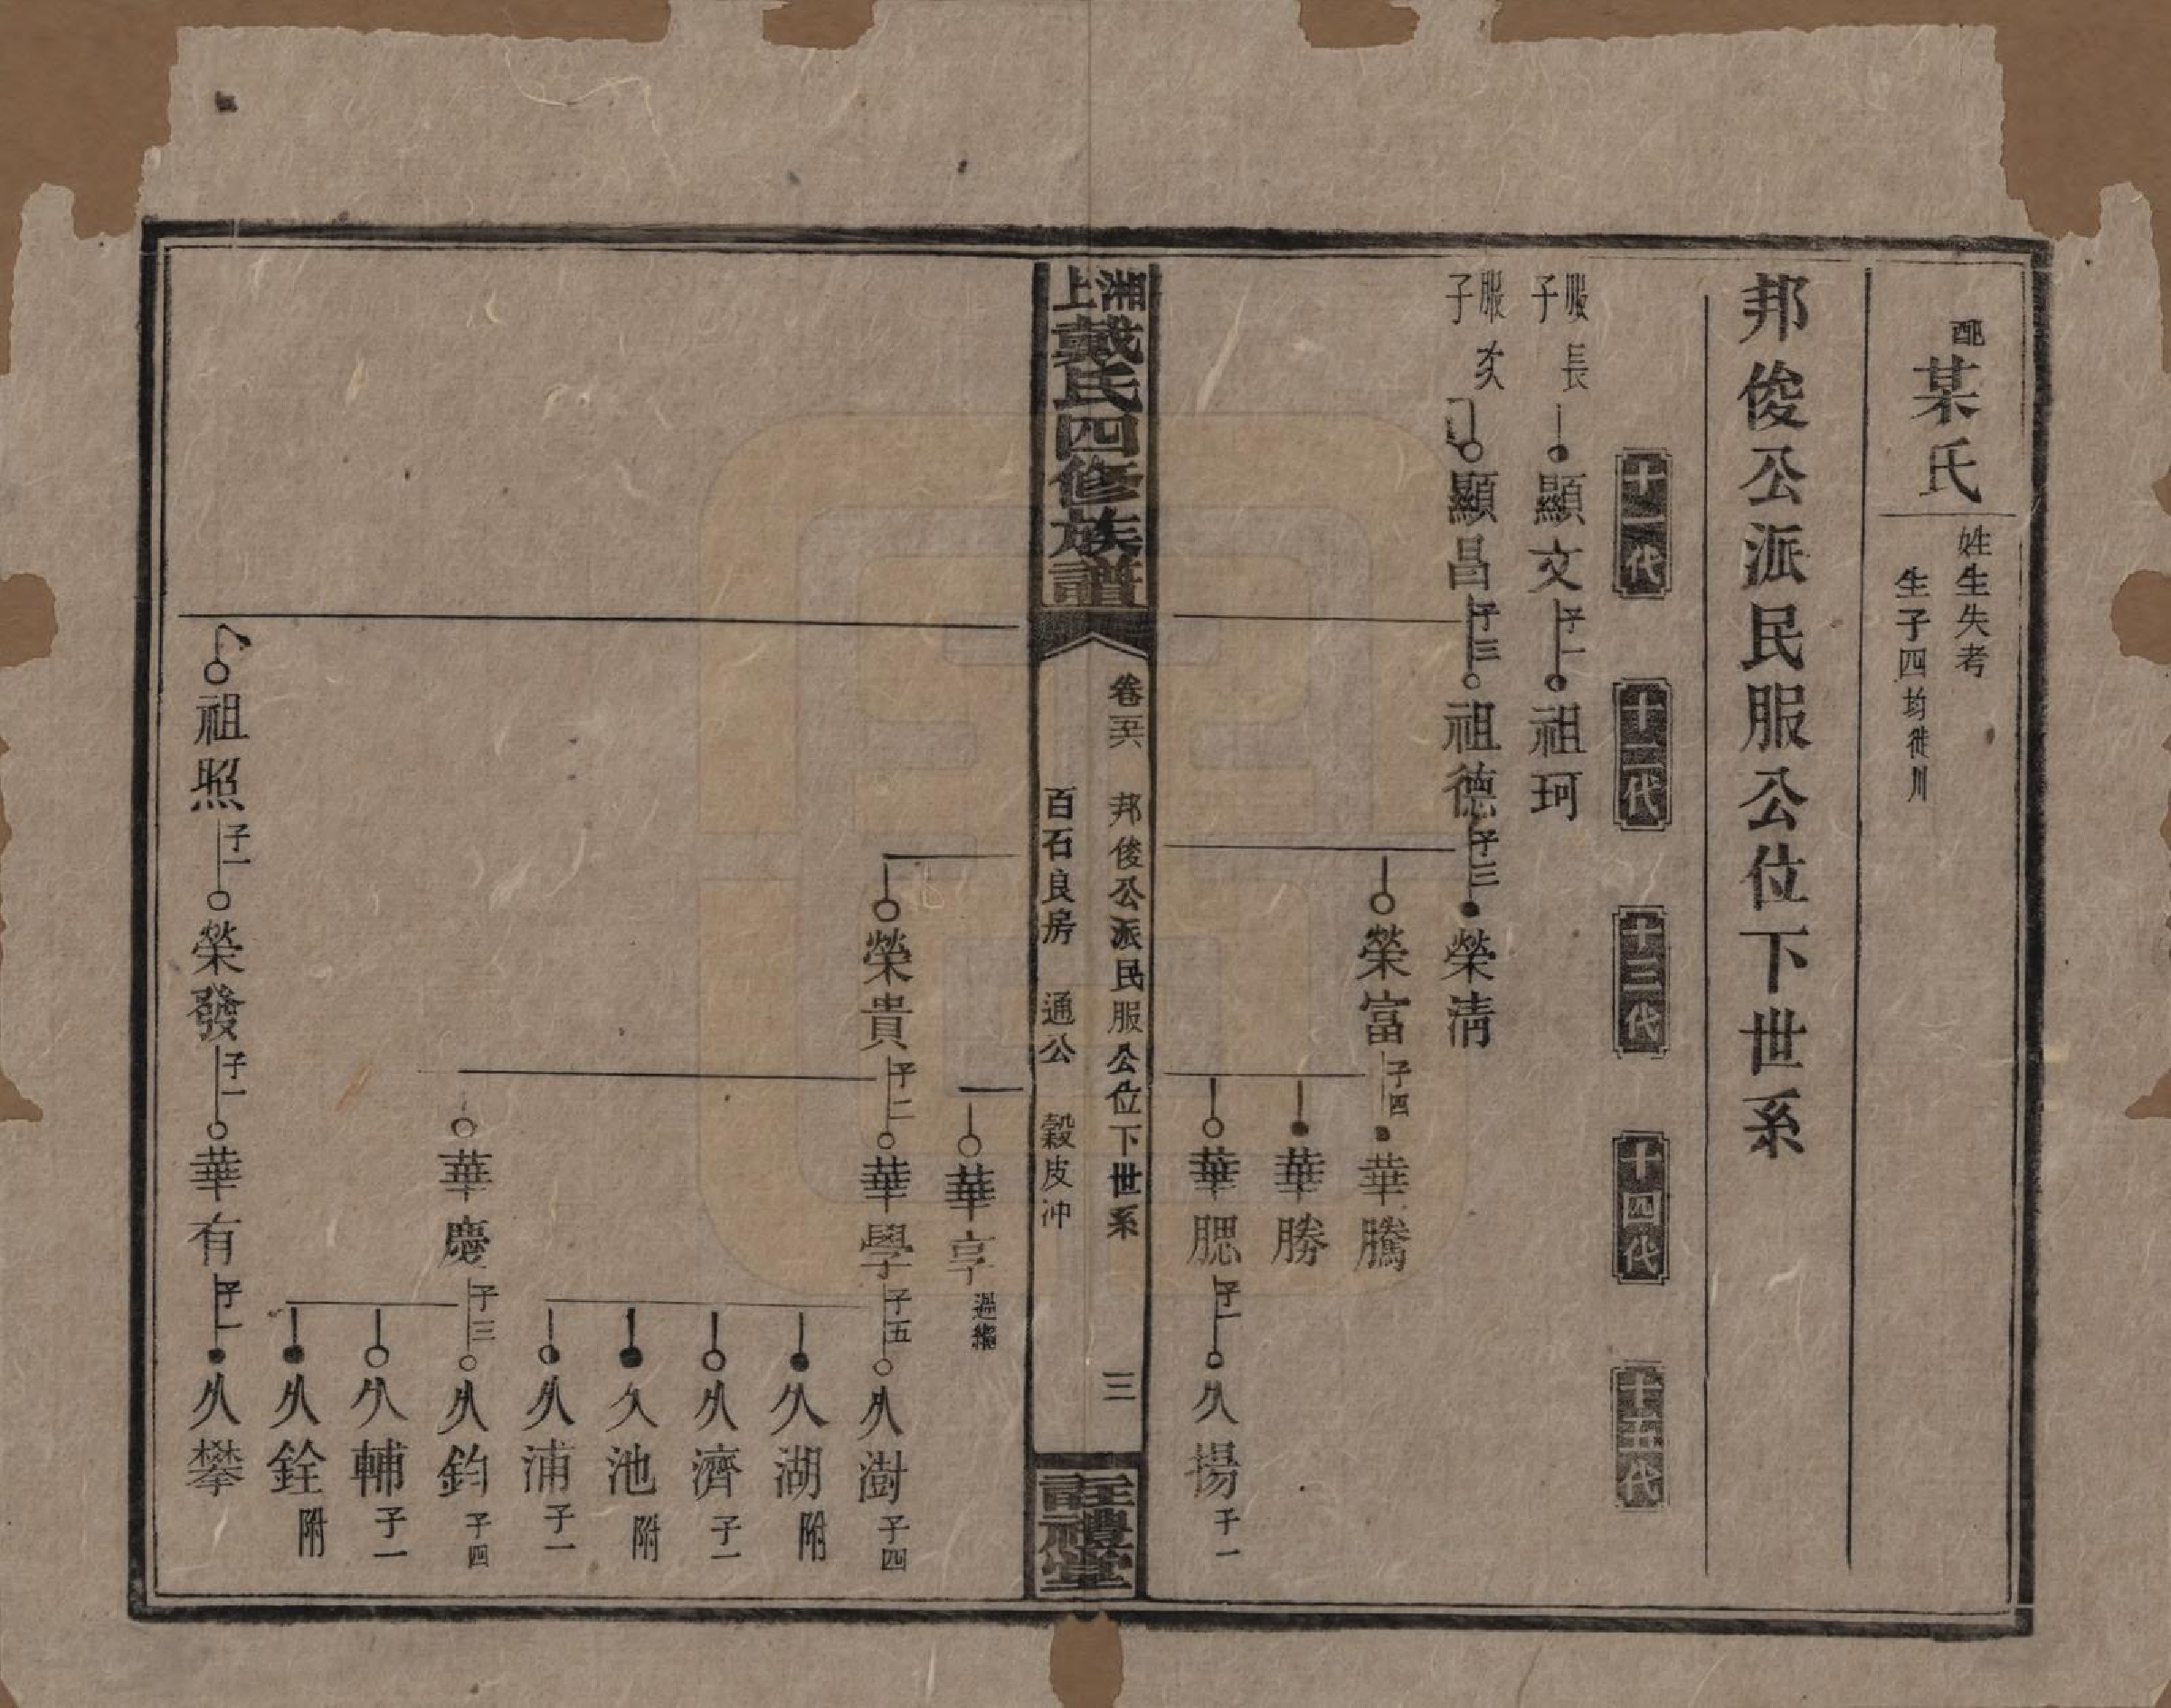 配某氏
姓生失考
生子四均徙川
邦俊公派民服公位下世系
十一代
十二代
十三代
十四代
十五代
服長子
顯文子一
祖珂
服次子
顯昌子三
祖德子三
榮清
榮富子四
華騰
華勝
華腮子一
久揚子一
湘上戴氏四修族譜
卷
邦俊公派民服公位下世系
三
百石良房 通公 穀皮沖
註禮堂
華享過繼
榮貴子二
華學子五
久澍子四
久湖附
久濟子一
久池附
久浦子一
華慶子三
久鈞子四
久輔子一
久銓附
祖照子一
榮發子一
華有子一
久攀